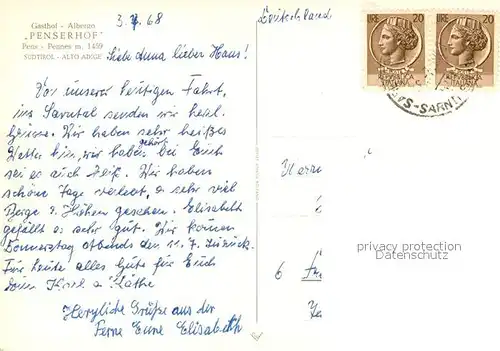 Gasthof - Albergo
"PENSERHOF"
Pens - Pennes m. 1459
SÜDTIROL - ALTO ADIGE
3. 7. 68
Liebe Anna, lieber Hans!
Vor unserer heutigen Fahrt,
ins Sarntal senden wir herzl.
Grüsse. Wir haben sehr heißes
Wetter hier, wir haben gehört bei Euch
sei es auch heiß. Wir haben
schöne Tage verlebt, u. sehr viel
Berge u. Höhen gesehen. Elisabeth
gefällt es sehr gut. Wir kommen
Donnerstag abends den 11.7. zurück.
Für heute alles Gute für Euch
Käthe
Herzliche Grüße aus der
Ferne Eure Elisabeth
Deutschland
LIRE 20
LIRE 20
SARNT
privacy protection
Datenschutz
6